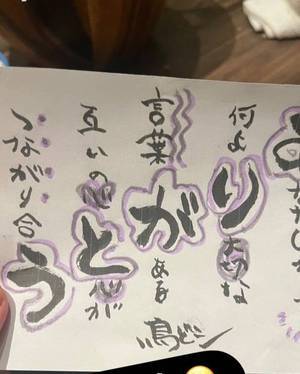 何より大切な
言葉がある
互いの心と心が
つながり合う